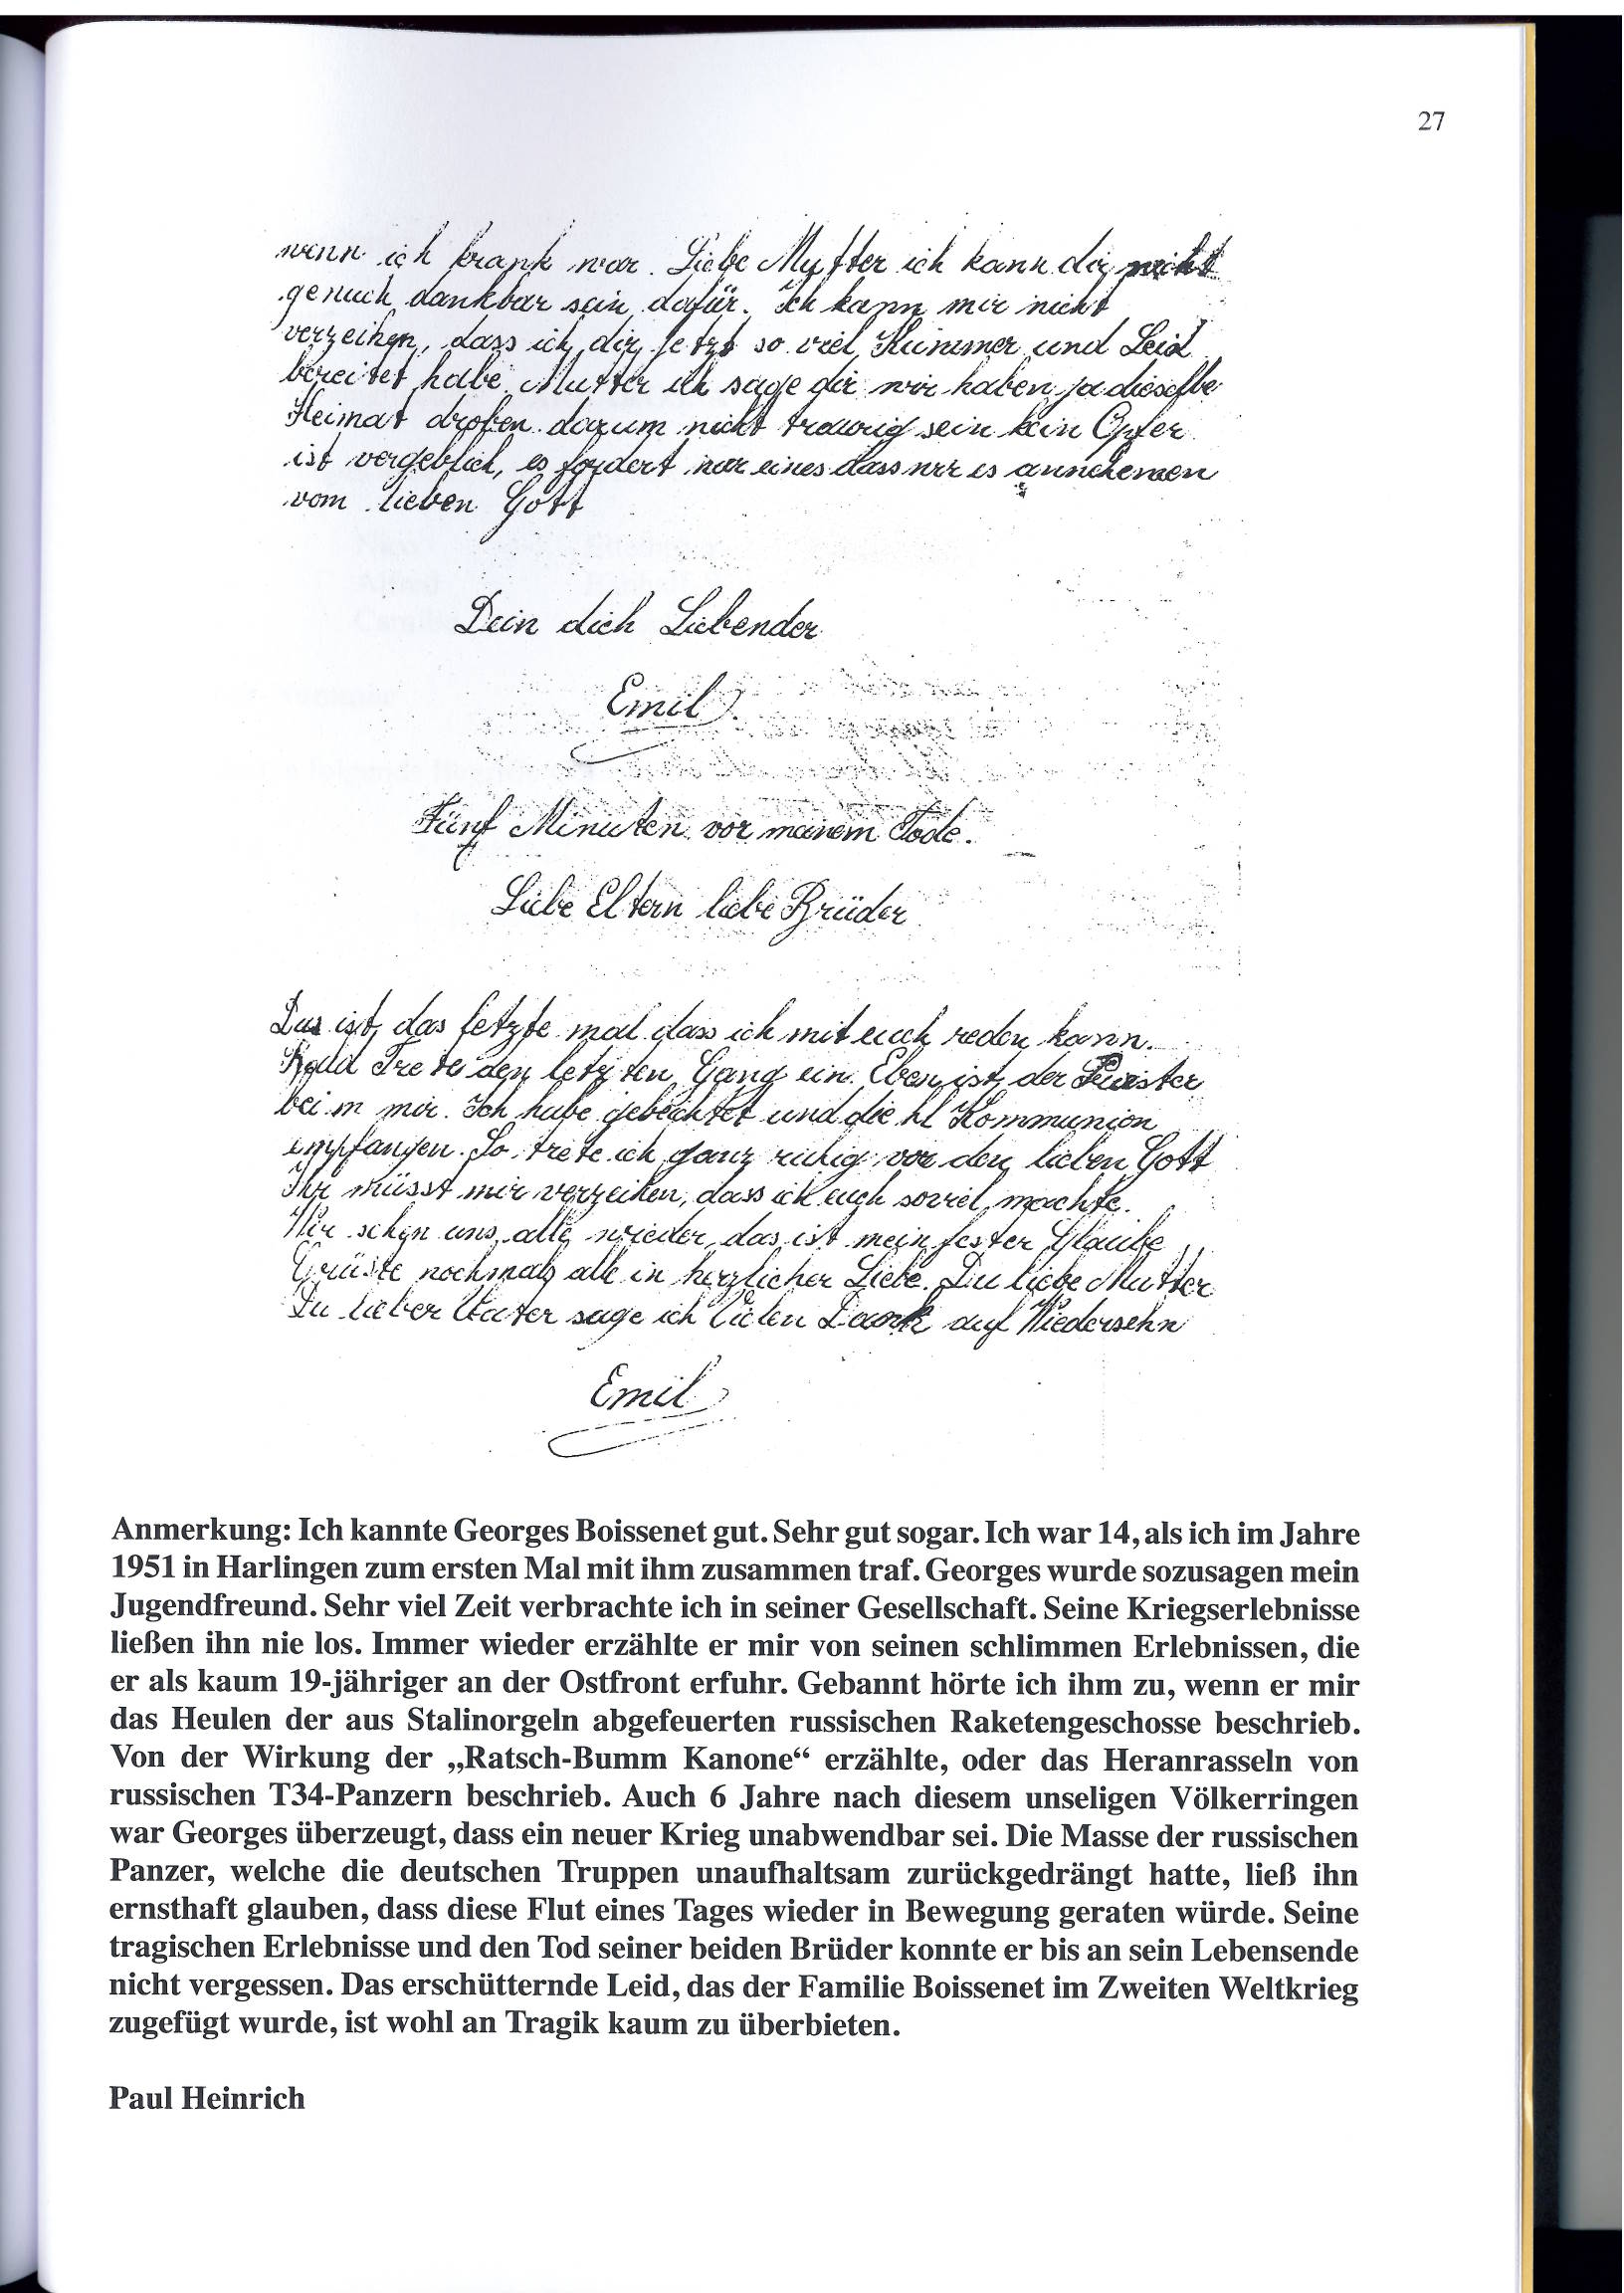 27
wenn ich krank war. Liebe Mutter ich kann dir nicht
genuch dankbar sein dafür. Ich kann mir nicht
verzeihen, dass ich dir jetzt so viel Kummer und Leid
bereitet habe. Mutter ich sage dir wir haben ja dieselbe
Heimat droben darum nicht traurig sein kein Opfer
ist vergeblich, es fordert nur eines dass wir es annehemen
vom lieben Gott
Dein dich Liebender
Emil.
Fünf Minuten vor meinem Tode.
Liebe Eltern liebe Brüder
Das ist das letzte mal dass ich mit euch reden kann.
Bald Trete den letzten Gang ein. Eben ist der
bei m mir. Ich habe gebeichtet und die hl Kommunion
empfangen. So trete ich ganz ruhig vor den lieben Gott
Ihr müsst mir verzeihen, dass ich euch soviel machte.
Wir sehen uns alle wieder, das ist mein fester Glaube
Grüsse nochmals alle in herzlicher Liebe. Du liebe Mutter
Du lieber Vater sage ich Vielen Dank auf Wiedersehn
Emil
Anmerkung: Ich kannte Georges Boissenet gut. Sehr gut sogar. Ich war 14, als ich im Jahre
1951 in Harlingen zum ersten Mal mit ihm zusammen traf. Georges wurde sozusagen mein
Jugendfreund. Sehr viel Zeit verbrachte ich in seiner Gesellschaft. Seine Kriegserlebnisse
ließen ihn nie los. Immer wieder erzählte er mir von seinen schlimmen Erlebnissen, die
er als kaum 19-jähriger an der Ostfront erfuhr. Gebannt hörte ich ihm zu, wenn er mir
das Heulen der aus Stalinorgeln abgefeuerten russischen Raketengeschosse beschrieb.
Von der Wirkung der „Ratsch-Bumm Kanone“ erzählte, oder das Heranrasseln von
russischen T34-Panzern beschrieb. Auch 6 Jahre nach diesem unseligen Völkerringen
war Georges überzeugt, dass ein neuer Krieg unabwendbar sei. Die Masse der russischen
Panzer, welche die deutschen Truppen unaufhaltsam zurückgedrängt hatte, ließ ihn
ernsthaft glauben, dass diese Flut eines Tages wieder in Bewegung geraten würde. Seine
tragischen Erlebnisse und den Tod seiner beiden Brüder konnte er bis an sein Lebensende
nicht vergessen. Das erschütternde Leid, das der Familie Boissenet im Zweiten Weltkrieg
zugefügt wurde, ist wohl an Tragik kaum zu überbieten.
Paul Heinrich